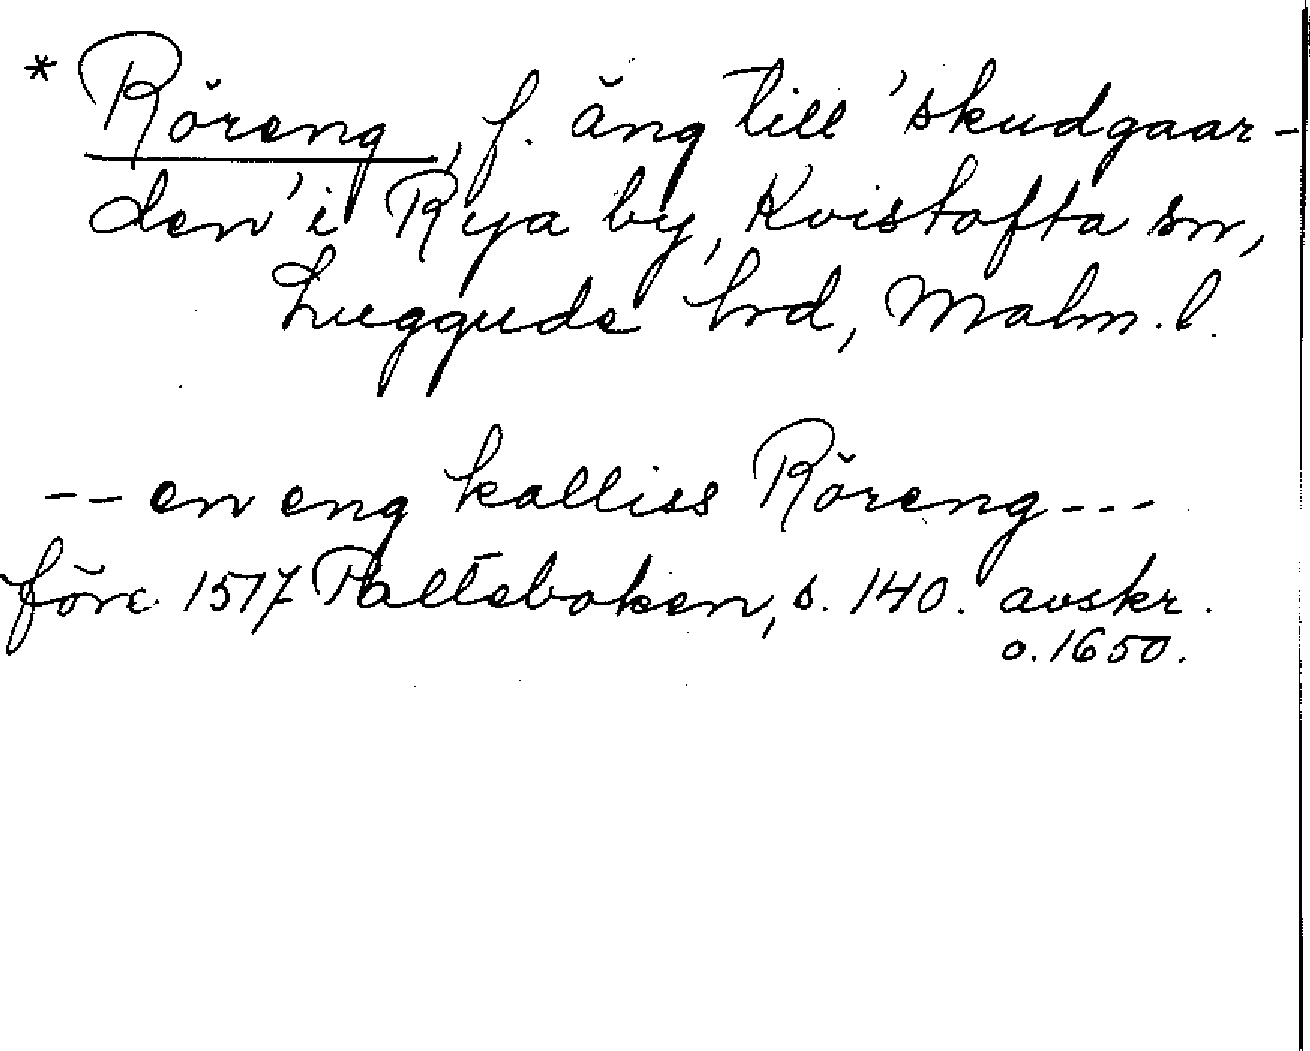 * Röreng, f. äng till 'skudgaar-
den' i Rya by, Kvistofta sn,
Luggude hrd, Malm. l.
-- en eng kalliss Röreng ---
före 1517 Palteboken, s. 140. avskr.
o. 1650.